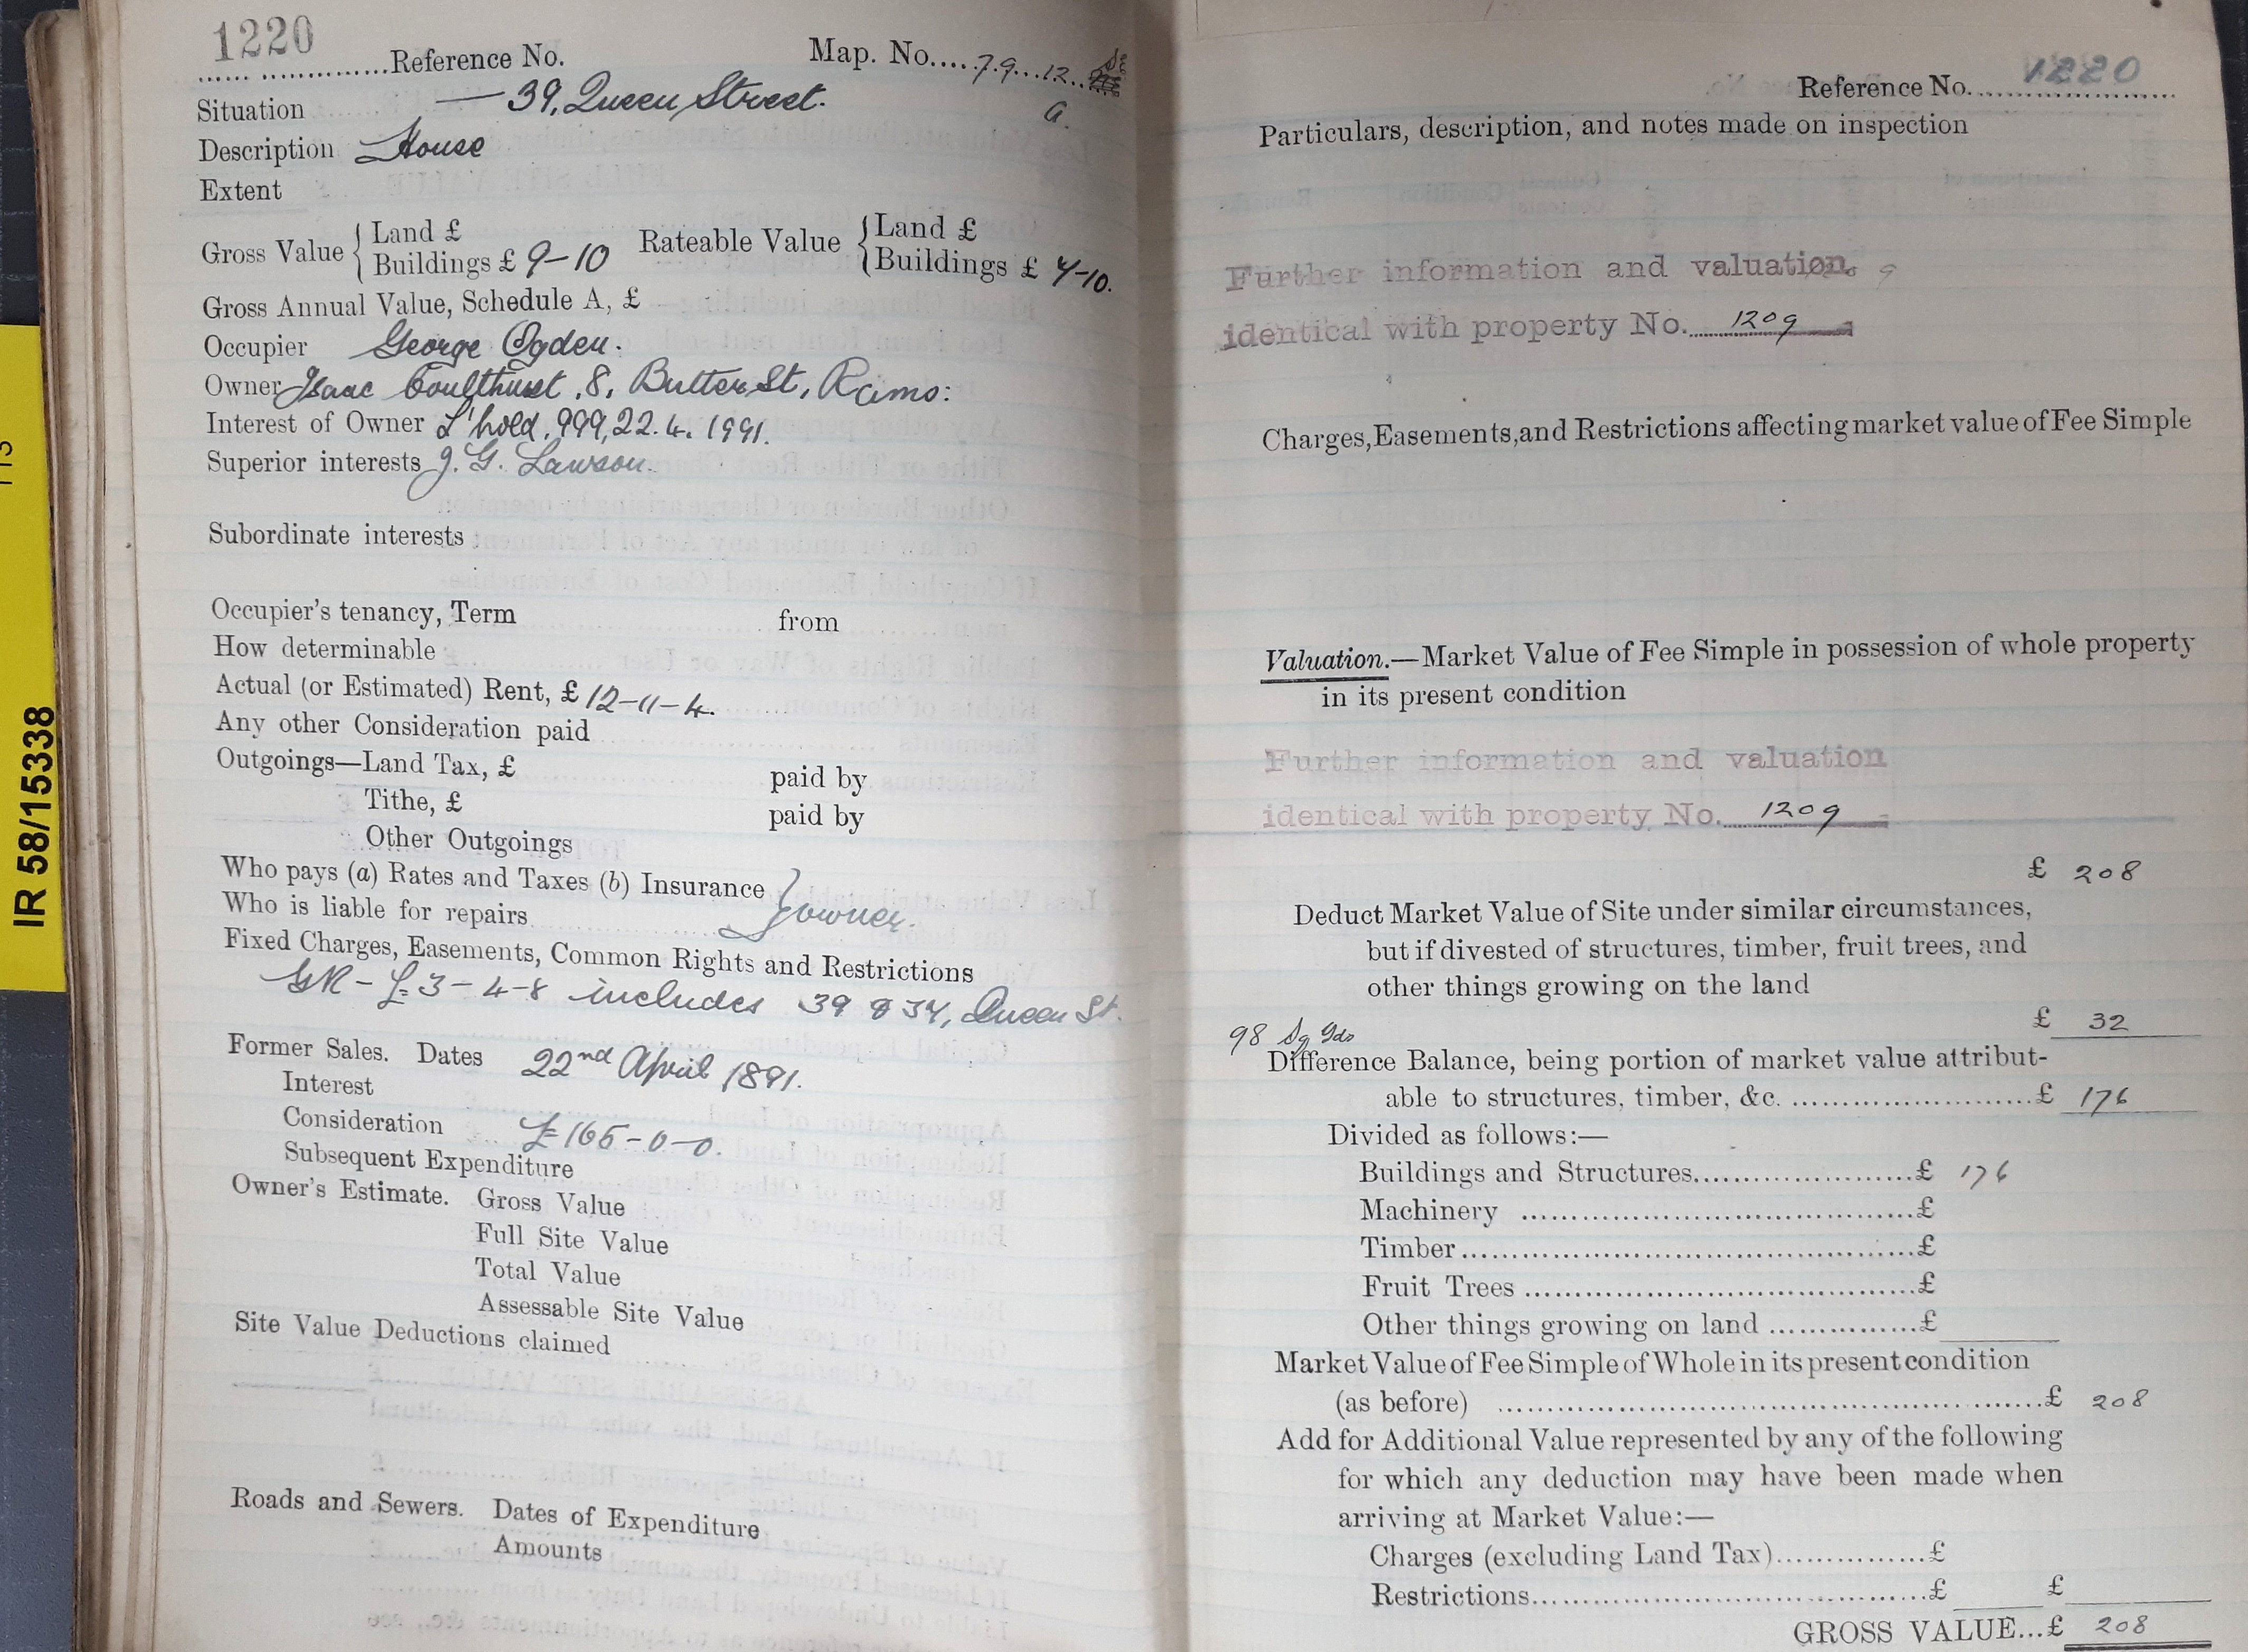 1220
Reference No. Map. No. 79 12
Situation — 39, Queen Street. a.
Description House
Extent
Gross Value { Land £ Rateable Value { Land £
Buildings £ 9-10 Buildings £ 7-10.
Gross Annual Value, Schedule A, £
Occupier George Ogden.
Owner Isaac Coulthurst, 8, Butter St, Rams:
Interest of Owner L'hold, 999, 22.4. 1991.
Superior interests J. G. Lawson.
Subordinate interests
Occupier's tenancy, Term from
How determinable
Actual (or Estimated) Rent, £ 12-11-4.
Any other Consideration paid
Outgoings—Land Tax, £ paid by
Tithe, £ paid by
Other Outgoings
Who pays (a) Rates and Taxes (b) Insurance }
Who is liable for repairs owner.
Fixed Charges, Easements, Common Rights and Restrictions
GR - £3-4-8 includes 39 & 37, Queen St.
Former Sales. Dates 22nd April 1891.
Interest
Consideration £165-0-0.
Subsequent Expenditure
Owner's Estimate. Gross Value
Full Site Value
Total Value
Assessable Site Value
Site Value Deductions claimed
Roads and Sewers. Dates of Expenditure
Amounts
IR 58/15338
113
Reference No. 1220
Particulars, description, and notes made on inspection
Further information and valuation
identical with property No. 1209
Charges, Easements, and Restrictions affecting market value of Fee Simple
Valuation.—Market Value of Fee Simple in possession of whole property
in its present condition
Further information and valuation
identical with property No. 1209
£ 208
Deduct Market Value of Site under similar circumstances,
but if divested of structures, timber, fruit trees, and
other things growing on the land
£ 32
98 Sq Yds
Difference Balance, being portion of market value attribut-
able to structures, timber, &c. £ 176
Divided as follows:—
Buildings and Structures £ 176
Machinery £
Timber £
Fruit Trees £
Other things growing on land £
Market Value of Fee Simple of Whole in its present condition
(as before) £ 208
Add for Additional Value represented by any of the following
for which any deduction may have been made when
arriving at Market Value:—
Charges (excluding Land Tax) £
Restrictions £ £
GROSS VALUE...£ 208